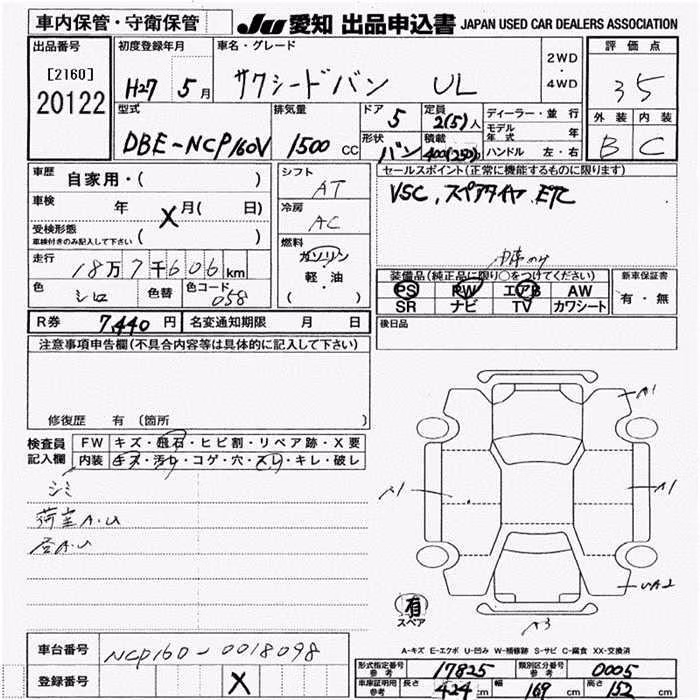 車内保管・守衛保管 JU 愛知 出品申込書 JAPAN USED CAR DEALERS ASSOCIATION
出品番号 [2160] 20122
初度登録年月 H27 5月
車名・グレード サクシードバン UL
2WD・4WD
評価点 35
外装 内装 B C
型式 DBE-NCP160V
排気量 1500 CC
ドア 5
定員 2(5)人
形状 バン
積載 400(250)
ディーラー・並行
モデル年式 年
ハンドル 左・右
車歴 自家用・( )
車検 年 X 月( 日)
受検形態 ( )
車検付きのみ記入して下さい
走行 18万7千606km
色 シロ 色替 色コード 058
シフト AT
冷房 AC
燃料 ガソリン・軽油 ( )
セールスポイント(正常に機能するものに限ります)
VSC、スペアタイヤ ETC
装備品(純正品に限り○をつけてください)
PS PW エアB AW
SR ナビ TV カワシート
新車保証書 有・無
R券 7,440円 名変通知期限 月 日
後日品
注意事項申告欄(不具合内容等は具体的に記入して下さい)
修復歴 有 〔箇所 〕
検査員記入欄 FW キズ・飛石・ヒビ割・リペア跡・X要
内装 キズ・汚れ・コゲ・穴・スレ・キレ・破レ
シミ
荷室A.U
A1
A1
A1
UA2
A3
有
スペア
A-キズ E-エクボ U-凹み W-補修跡 S-サビ C-腐食 XX-交換済
車台番号 NCP160-0018098
登録番号 X
形式指定番号 参考 17825 類別区分番号 参考 0005
車庫証明用 参考 長さ 424cm 幅 169cm 高さ 152cm